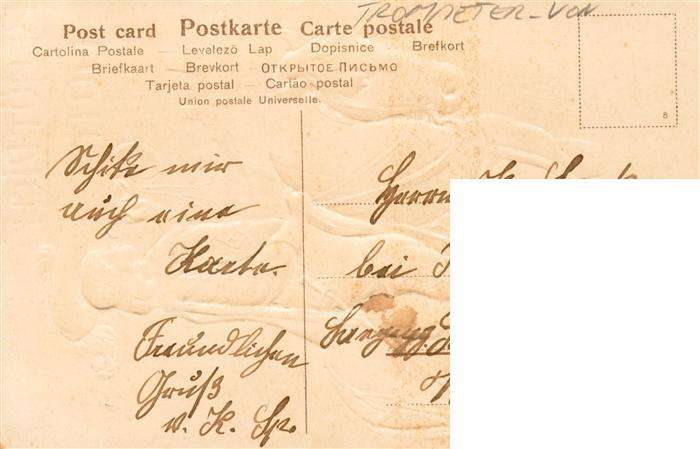 TROMPETER-VON
Post card Postkarte Carte postale
Cartolina Postale — Levelező Lap Dopisnice — Brefkort
Briefkaart — Brevkort — ОТКРЫТОЕ ПИСЬМО
Tarjeta postal — Cartão postal
Union postale Universelle.
8
Schike mir
auch eine
Karte.
Freundlichen
Gruß
w. K. Sp.
Herrn K.
bei